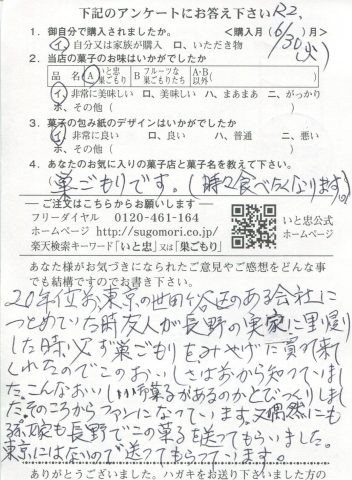 下記のアンケートにお答え下さい R2,
1. 御自分で購入されましたか。 <購入月(6/30)月> (火)
イ、自分又は家族が購入 ロ、いただき物
2. 当店の菓子のお味はいかがでしたか
品名 A いと忠巣ごもり B フルーツな巣ごもりたち A・B以外( )
イ、非常に美味しい ロ、美味しい ハ、まあまあ ニ、がっかり
ホ、その他( )
3. 菓子の包み紙のデザインはいかがでしたか
イ、非常に良い ロ、良い ハ、普通 ニ、悪い
ホ、その他( )
4. あなたのお気に入りの菓子店と菓子名を教えて下さい。
巣ごもりです。(時々食べたくなります。)
ご注文はこちらからお願いします
フリーダイヤル 0120-461-164
ホームページ http://sugomori.co.jp/
楽天検索キーワード「いと忠」又は「巣ごもり」
いと忠公式
ホームページ
あなた様がお気づきになられたご意見やご感想をどんな事
でも結構ですのでお書き下さい。
20年位前東京の世田ヶ谷区のある会社に
つとめていた時友人が長野の実家に里帰り
した時必ず巣ごもりをみやげに買って来
くれたのでこのおいしさは前から知っていまし
た。こんなおいしいお菓子があるのかとびっくりしまし
た。そのころからファンになっています。又偶然にも
嫁も長野でこの菓子を送ってもらいました。
東京にはないので送ってもらっています。
ありがとうございました。ハガキをお送り下さいました方の